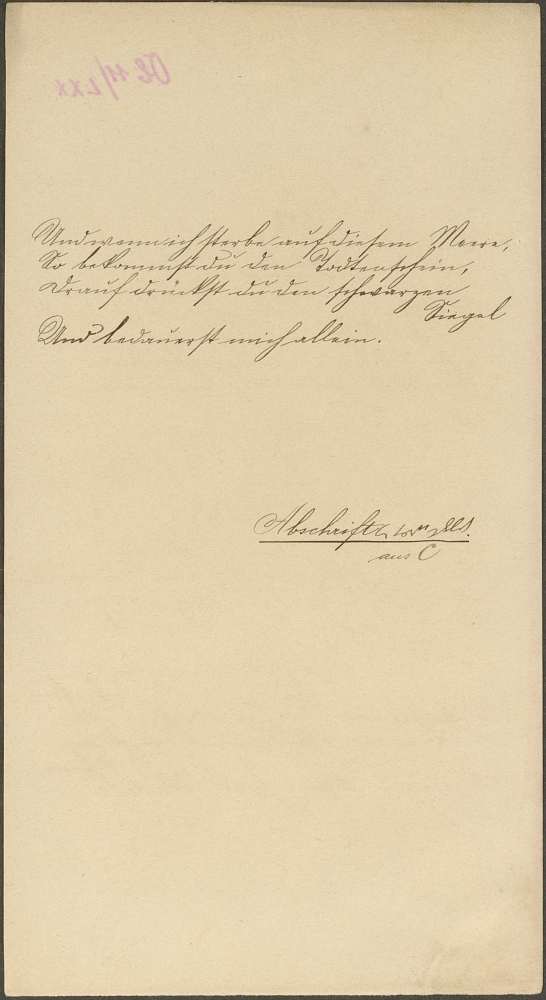 Und wenn ich sterbe auf diesem Meere,
So bekommst du den Todtenschein,
Drauf drückst du den schwarzen
Siegel
Und bedauerst mich allein.
Abschrift von
aus C